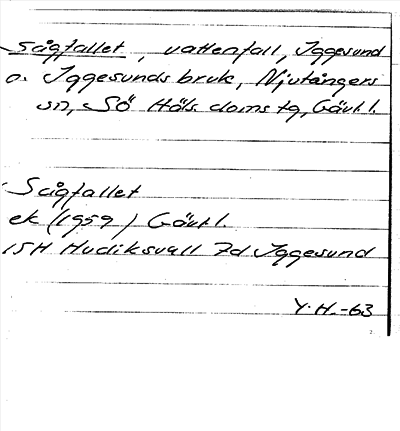 Sågfallet, vattenfall, Iggesund
o. Iggesunds bruk, Njutångers
sn, Sö Häls. doms tg, Gävl l.
Sågfallet
ek (1959) Gävl l.
15H Hudiksvall 7d Iggesund
Y.H.-63